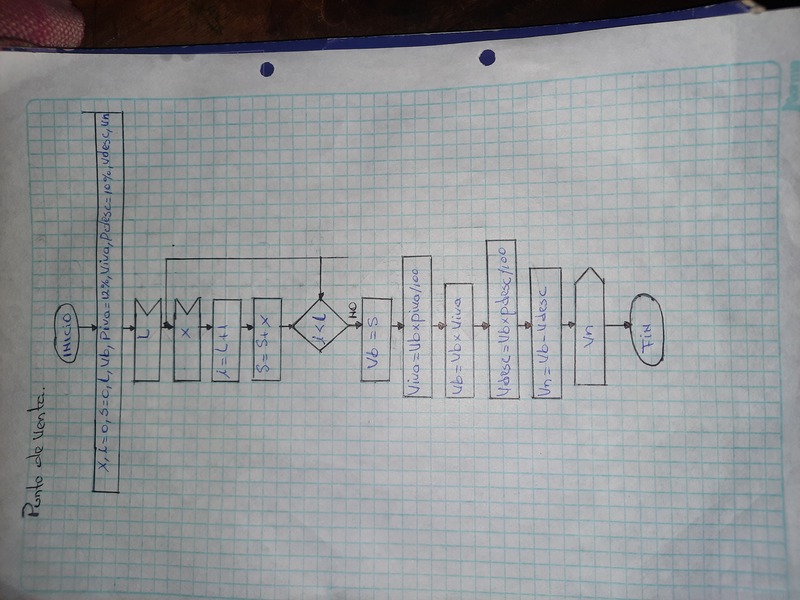 Punto de venta.
INICIO
X, i=0, S=0, L, Vb, Piva=12%, Viva, Pdesc=10%, Vdesc, Vn
L
x
i = L+1
S = S+ x
i < L
NO
Vb = S
Viva=Vb×piva/100
Vb=Vb×Viva
Vdesc=Vb×pdesc/100
Vn=Vb-Vdesc
Vn
FIN
Norma